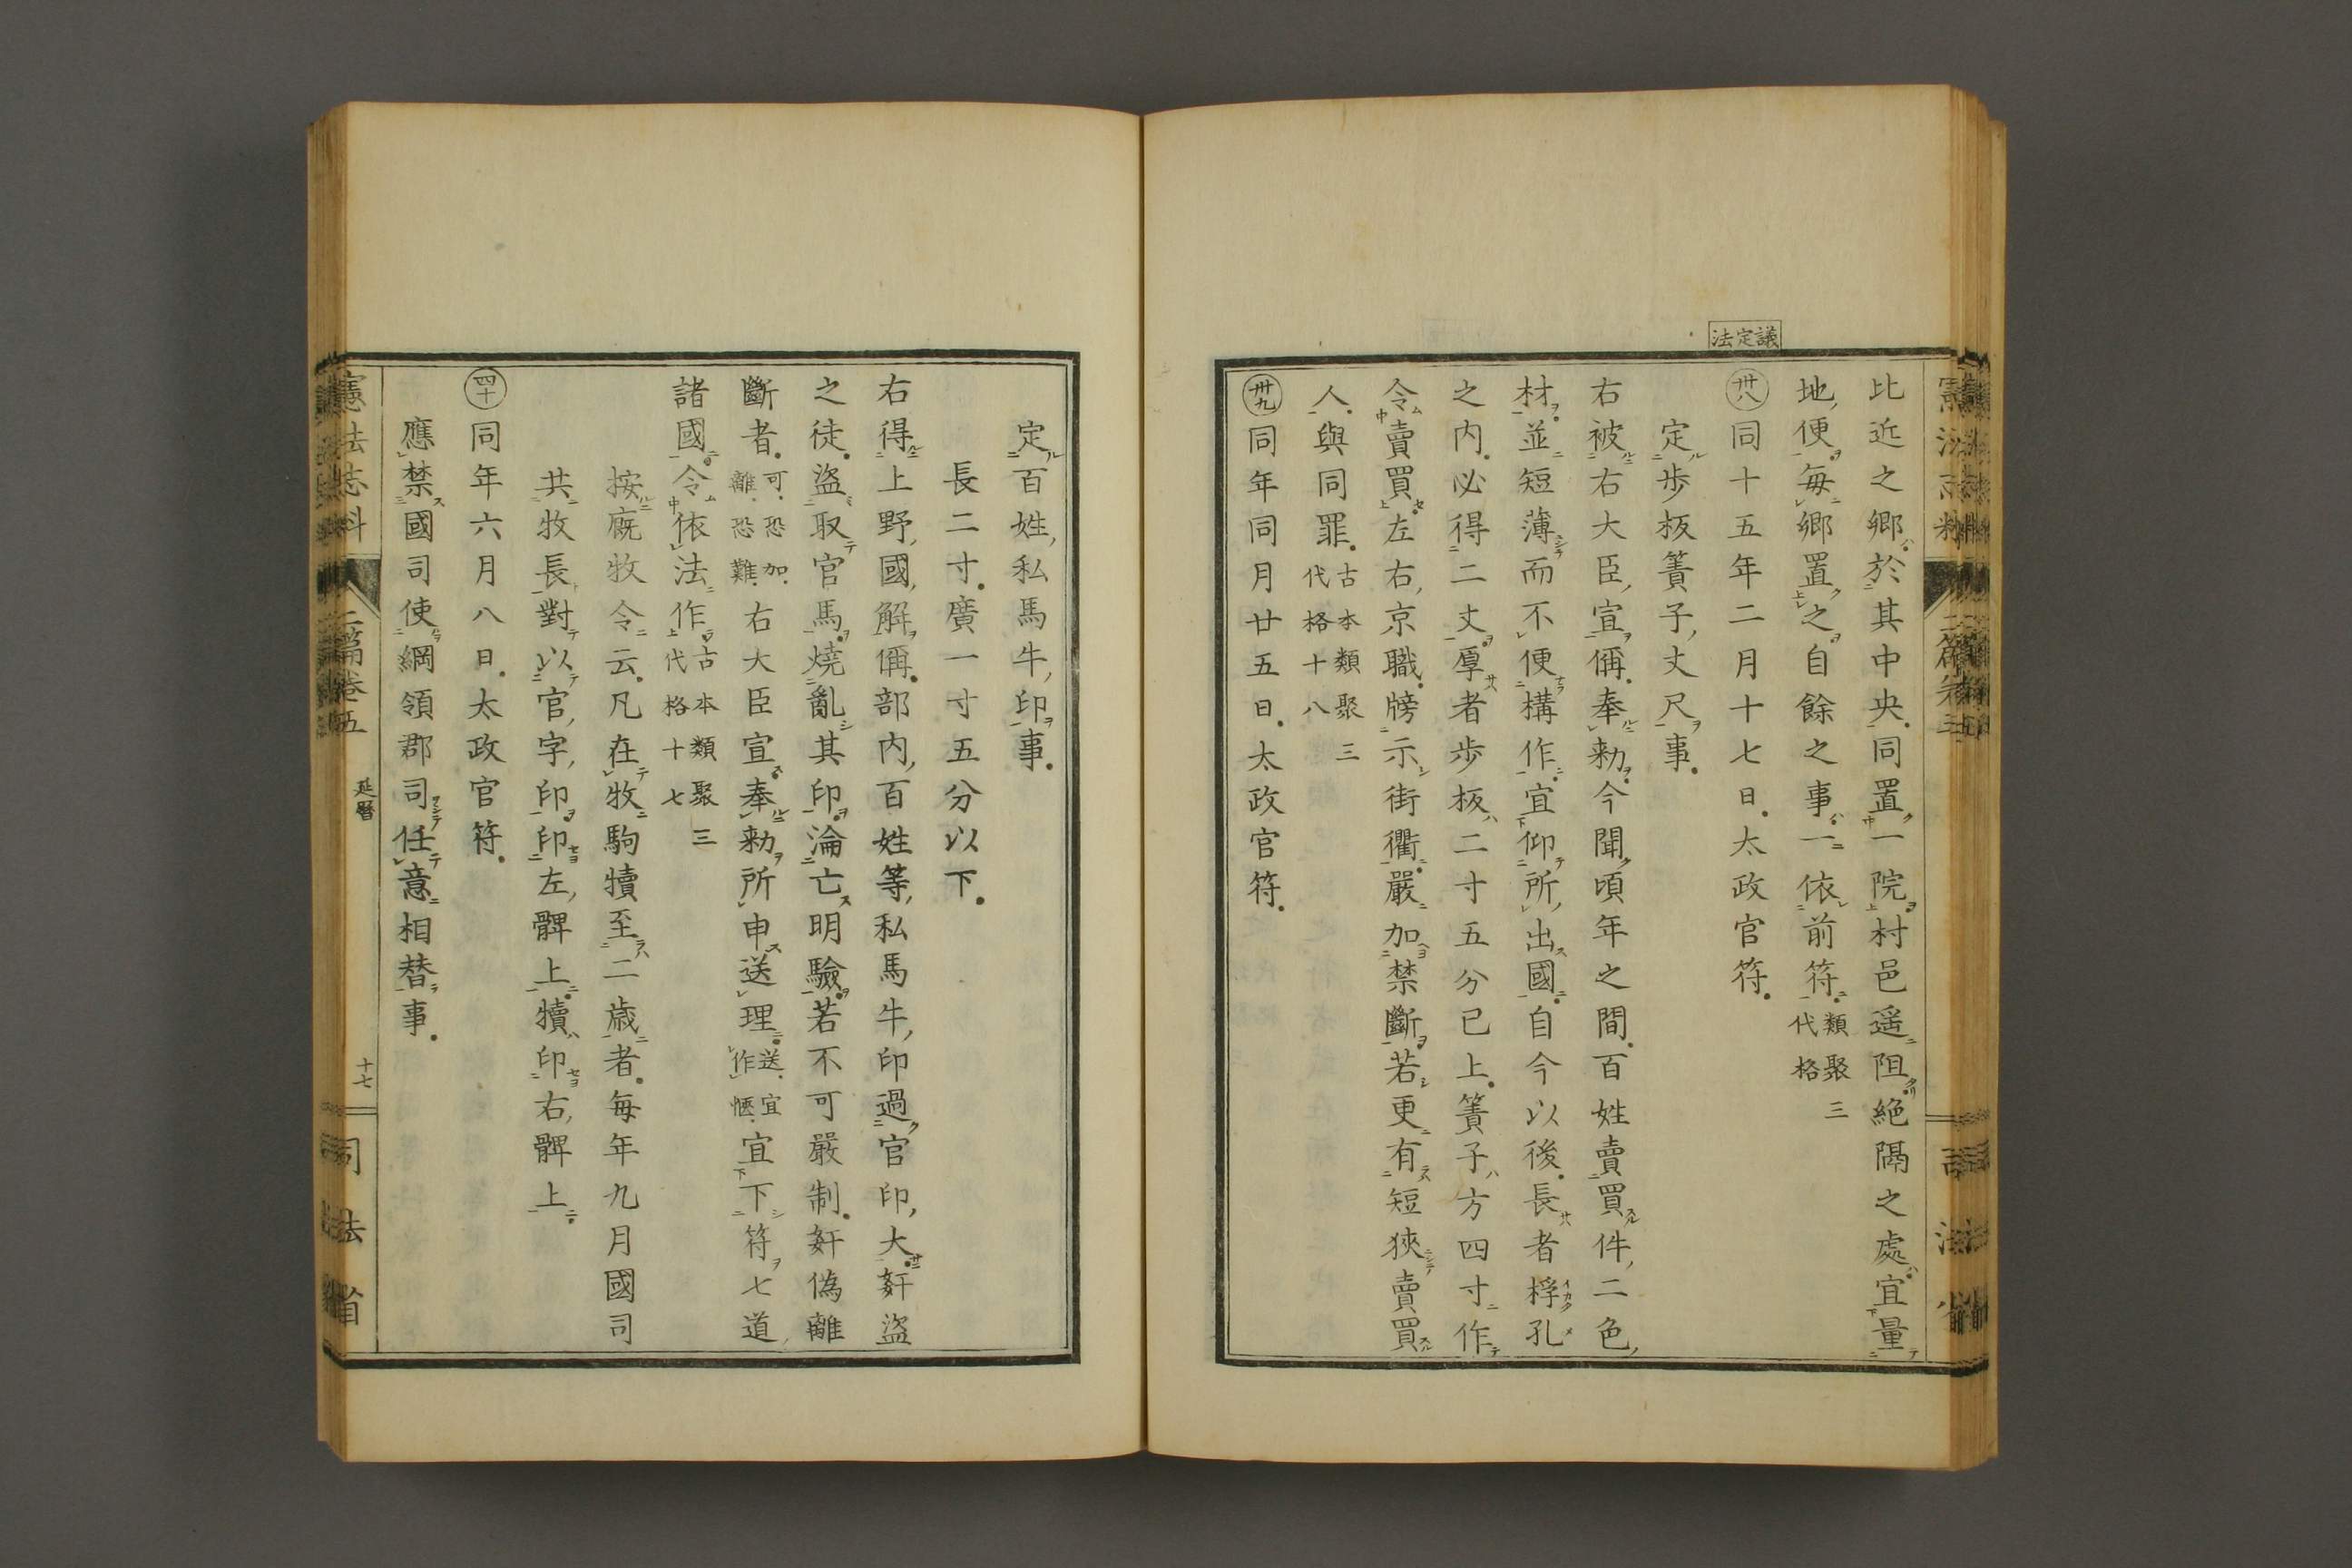 議定法
比近之郷於其中央同置一院村邑遥阻絶隔之處宜量
地便毎郷置之自餘之事一依前符類聚三代格
卅八同十五年二月十七日太政官符
定歩板簀子丈尺事
右被右大臣宣偁奉勅今聞頃年之間百姓賣買件二色
材並短薄而不便構作宜仰所出國自今以後長者桴孔
之内必得二丈厚者歩板二寸五分已上簀子方四寸作
令賣買左右京職牓示街衢嚴加禁斷若更有短狹賣買
人與同罪古本類聚三代格十八
卅九同年同月廿五日太政官符
定百姓私馬牛印事
長二寸廣一寸五分以下
右得上野國解偁部内百姓等私馬牛印過官印大姧盜
之徒盜取官馬燒亂其印淪亡明驗若不可嚴制姧偽離
斷者可恐加離恐難右大臣宣奉勅所申送理送宜作愜宜下符七道
諸國令依法作古本類聚三代格十七
按廐牧令云凡在牧駒犢至二歳者毎年九月國司
共牧長對以官字印印左髀上犢印右髀上
四十同年六月八日太政官符
應禁國司使綱領郡司任意相替事
憲法志料 二篇卷五 延暦 十七 司法省